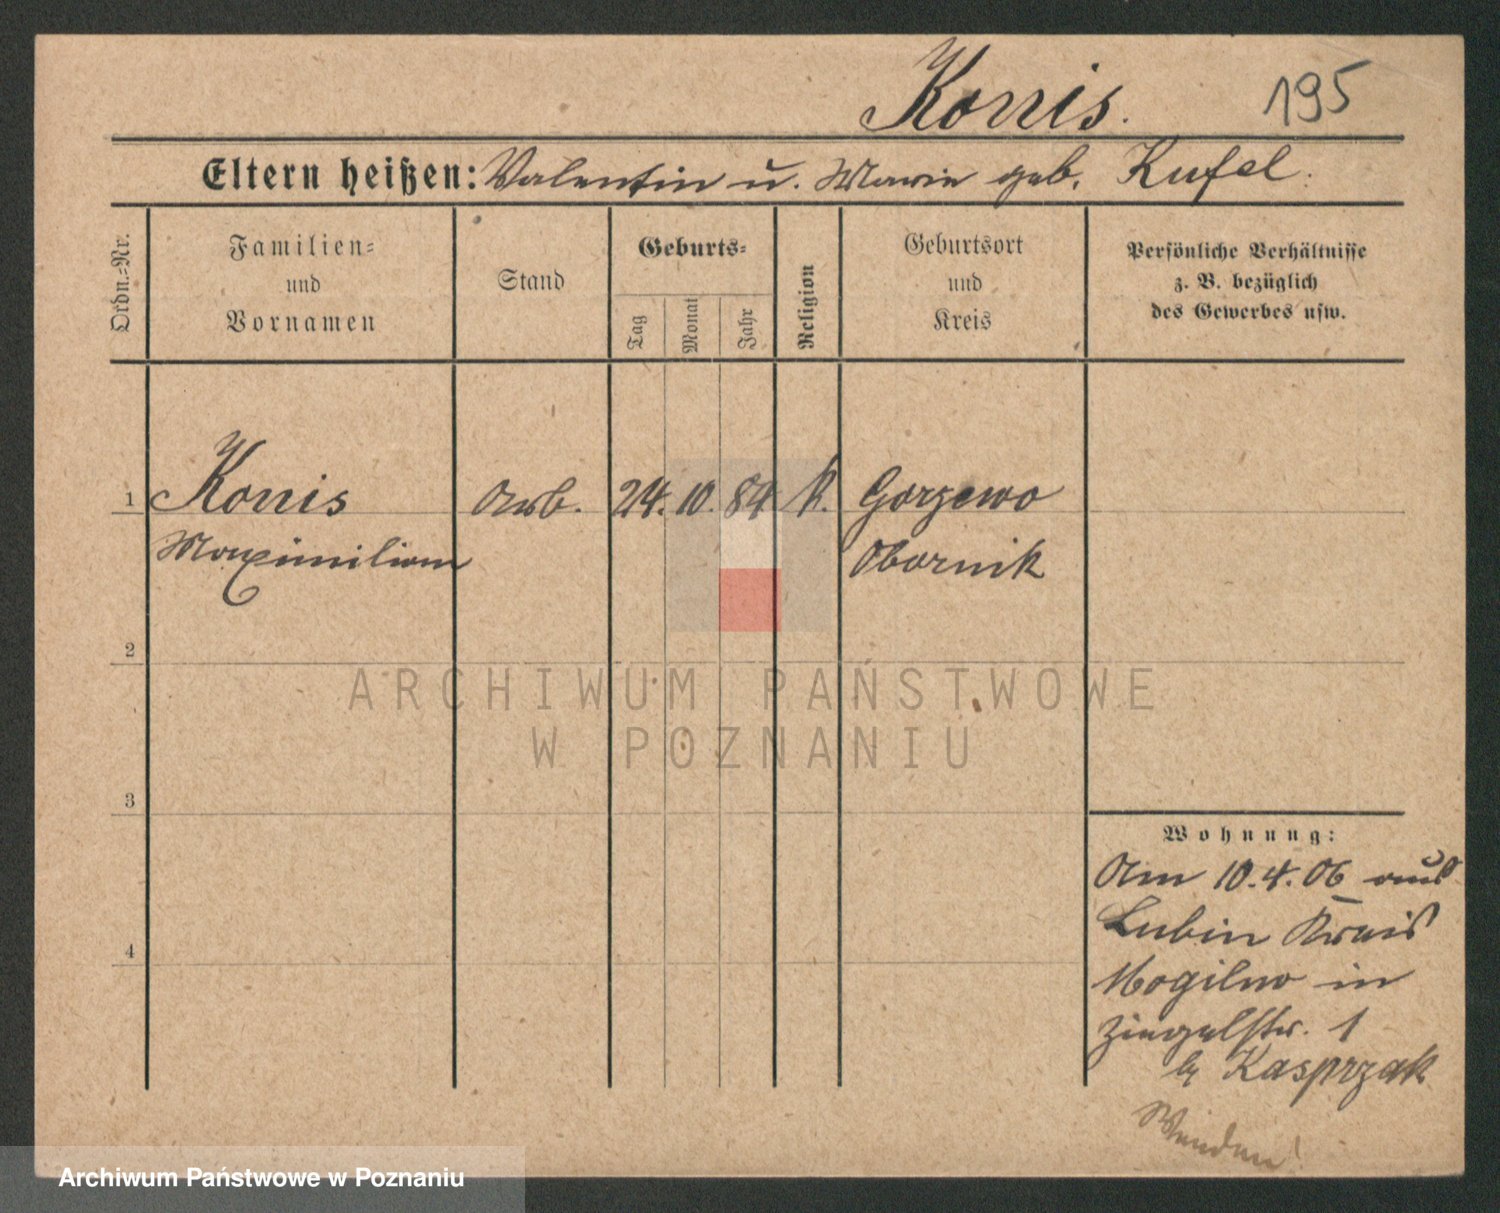 Konis. 195
Eltern heißen: Valentin u. Marie geb. Kufel.
Ordn.=Nr.
Familien=
und
Vornamen
Stand
Geburts=
Tag
Monat
Jahr
Religion
Geburtsort
und
Kreis
Persönliche Verhältnisse
z. B. bezüglich
des Gewerbes usw.
1 Konis Arb. 24. 10. 84 k. Gorzewo
Maximilian Obornik
2
3
4
Wohnung:
Am 10.4.06 aus
Lubin Kreis
Mogilno in
Ziegelstr. 1
b/ Kasprzak
Wenden!
ARCHIWUM PAŃSTWOWE
W POZNANIU
Archiwum Państwowe w Poznaniu